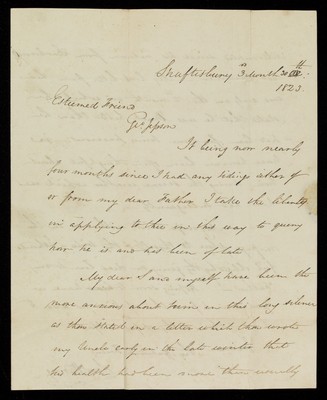 Shaftesbury 3d Month 30th
1823.
Esteemed Friend
Geo Jepson
It being now nearly
four months since I had any tidings either of
or from my dear Father I take the liberty
in applying to thee in this way to query
how he is and has been of late
My dear Sam & myself have been the
more anxious about him in this long silence
as thou stated in a letter which thou wrote
my Uncle early in the late winter that
his health had been more than usually